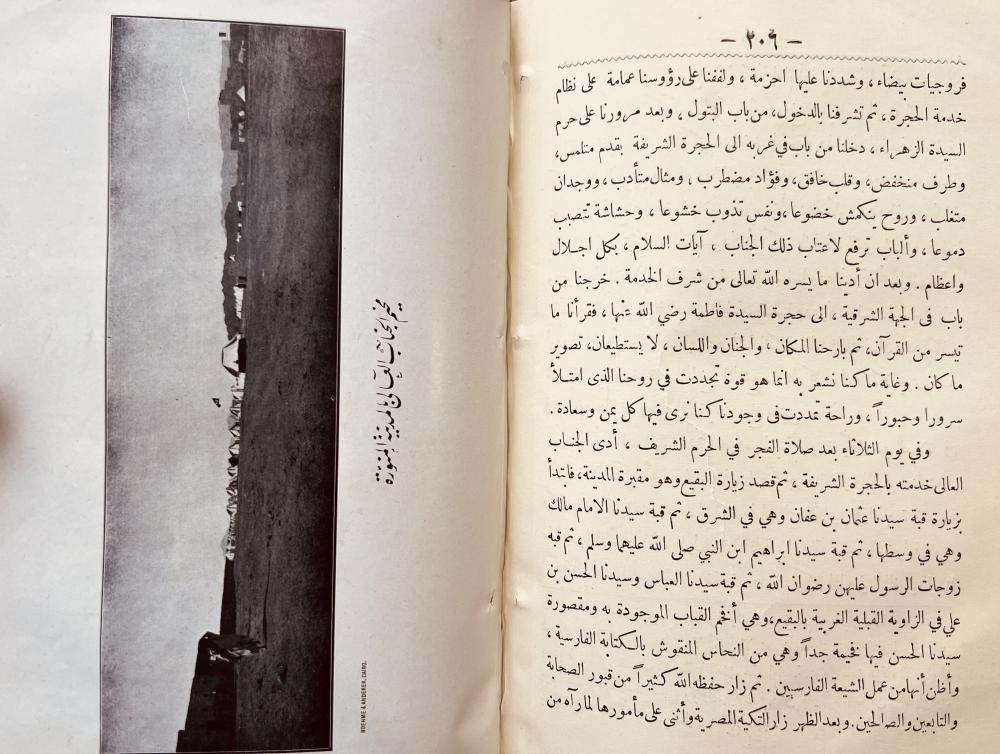 — ٣٠٩ —
فروجيات بيضاء، وشددنا عليها احزمة، ولففنا على رؤوسنا عمامة على نظام
خدمة الحجرة، ثم تشرفنا بالدخول، من باب البتول، وبعد مرورنا على حرم
السيدة الزهراء، دخلنا من باب في غربه الى الحجرة الشريفة بقدم متلمس،
وطرف منخفض، وقلب خافق، وفؤاد مضطرب، ومثال متأدب، ووجدان
متغلب، وروح ينكمش خضوعا، ونفس تذوب خشوعا، وحشاشة تتصبب
دموعا، وألباب ترفع لاعتاب ذلك الجناب، آيات السلام، بكل اجلال
واعظام. وبعد ان أدينا ما يسره الله تعالى من شرف الخدمة. خرجنا من
باب فى الجهة الشرقية، الى حجرة السيدة فاطمة رضي الله عنها، فقرأنا ما
تيسر من القرآن، ثم بارحنا المكان، والجنان واللسان، لا يستطيعان، تصوير
ما كان. وغاية ما كنا نشعر به انما هو قوة تجددت في روحنا الذى امتلأ
سرورا وحبوراً، وراحة تمددت فى وجودنا كنا نرى فيها كل يمن وسعادة.
وفي يوم الثلاثاء بعد صلاة الفجر في الحرم الشريف، أدى الجناب
العالى خدمته بالحجرة الشريفة، ثم قصد زيارة البقيع وهو مقبرة المدينة، فابتدأ
بزيارة قبة سيدنا عثمان بن عفان وهي في الشرق، ثم قبة سيدنا الامام مالك
وهي في وسطها، ثم قبة سيدنا ابراهيم ابن النبي صلى الله عليهما وسلم، ثم قبه
زوجات الرسول عليهن رضوان الله، ثم قبة سيدنا العباس وسيدنا الحسن بن
علي في الزاوية القبلية الغربية بالبقيع، وهي أفخم القباب الموجودة به ومقصورة
سيدنا الحسن فيها فخيمة جداً وهي من النحاس المنقوش بالكتابة الفارسية،
وأظن أنها من عمل الشيعة الفارسيين. ثم زار حفظه الله كثيراً من قبور الصحابة
والتابعين والصالحين. وبعد الظهر زار التكية المصرية وأثنى على مأمورها لما رآه من
مخيم الجناب العالى بالمدينة المنورة
BOEHME & ANDERER, CAIRO.